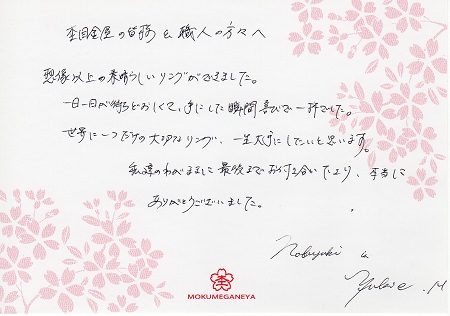 杢目金屋の皆様 & 職人の方々へ
想像以上の素晴らしいリングができました。
一日一日が待ちどおしくて、手にした瞬間喜びで一杯でした。
世界に一つだけの大切なリング、一生大事にしたいと思います。
私達のわがままに最後までお付き合い下さり、本当に
ありがとうございました。
Nobuyuki &
MOKUMEGANEYA